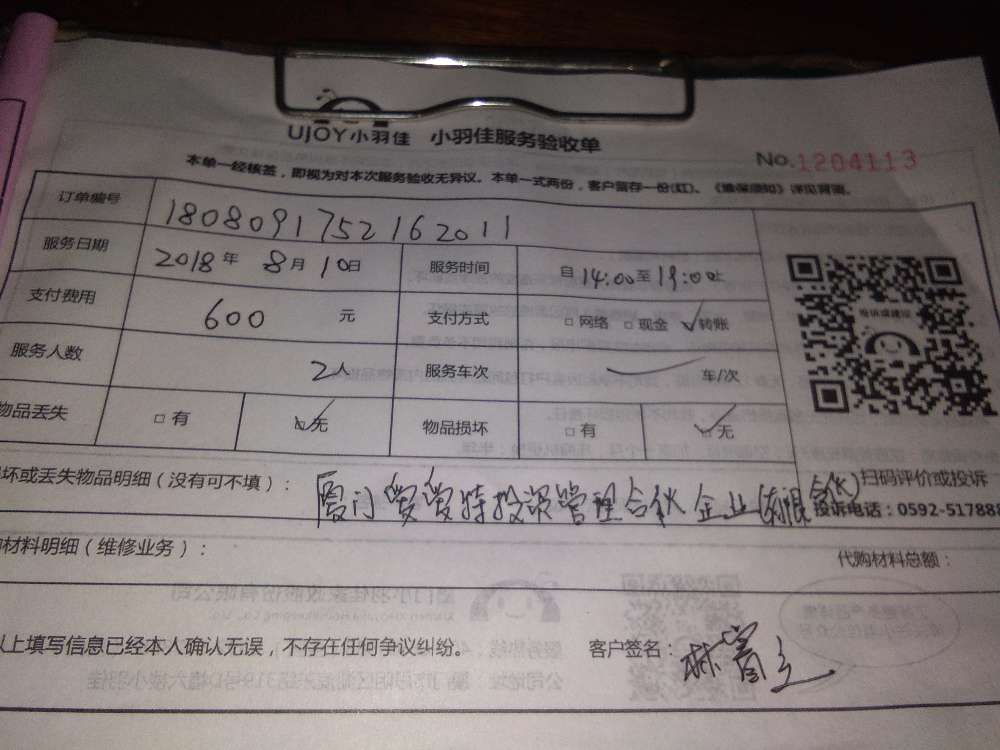 UJOY小羽佳 小羽佳服务验收单
No.1204113
本单一经核签，即视为对本次服务验收无异议。本单一式两份，客户留存一份(红)。《维保须知》详见背面。
订单编号 1808091752162011
服务日期 2018年8月10日 服务时间 自14:00至19:00止
支付费用 600元 支付方式 □网络 □现金 ☑转账
服务人数 2人 服务车次 车/次
物品丢失 □有 ☑无 物品损坏 □有 ☑无
坏或丢失物品明细（没有可不填）： 厦门爱爱特投资管理合伙企业(有限合伙)
扫码评价或投诉
投诉电话：0592-517888
材料明细（维修业务）： 代购材料总额：
以上填写信息已经本人确认无误，不存在任何争议纠纷。 客户签名：